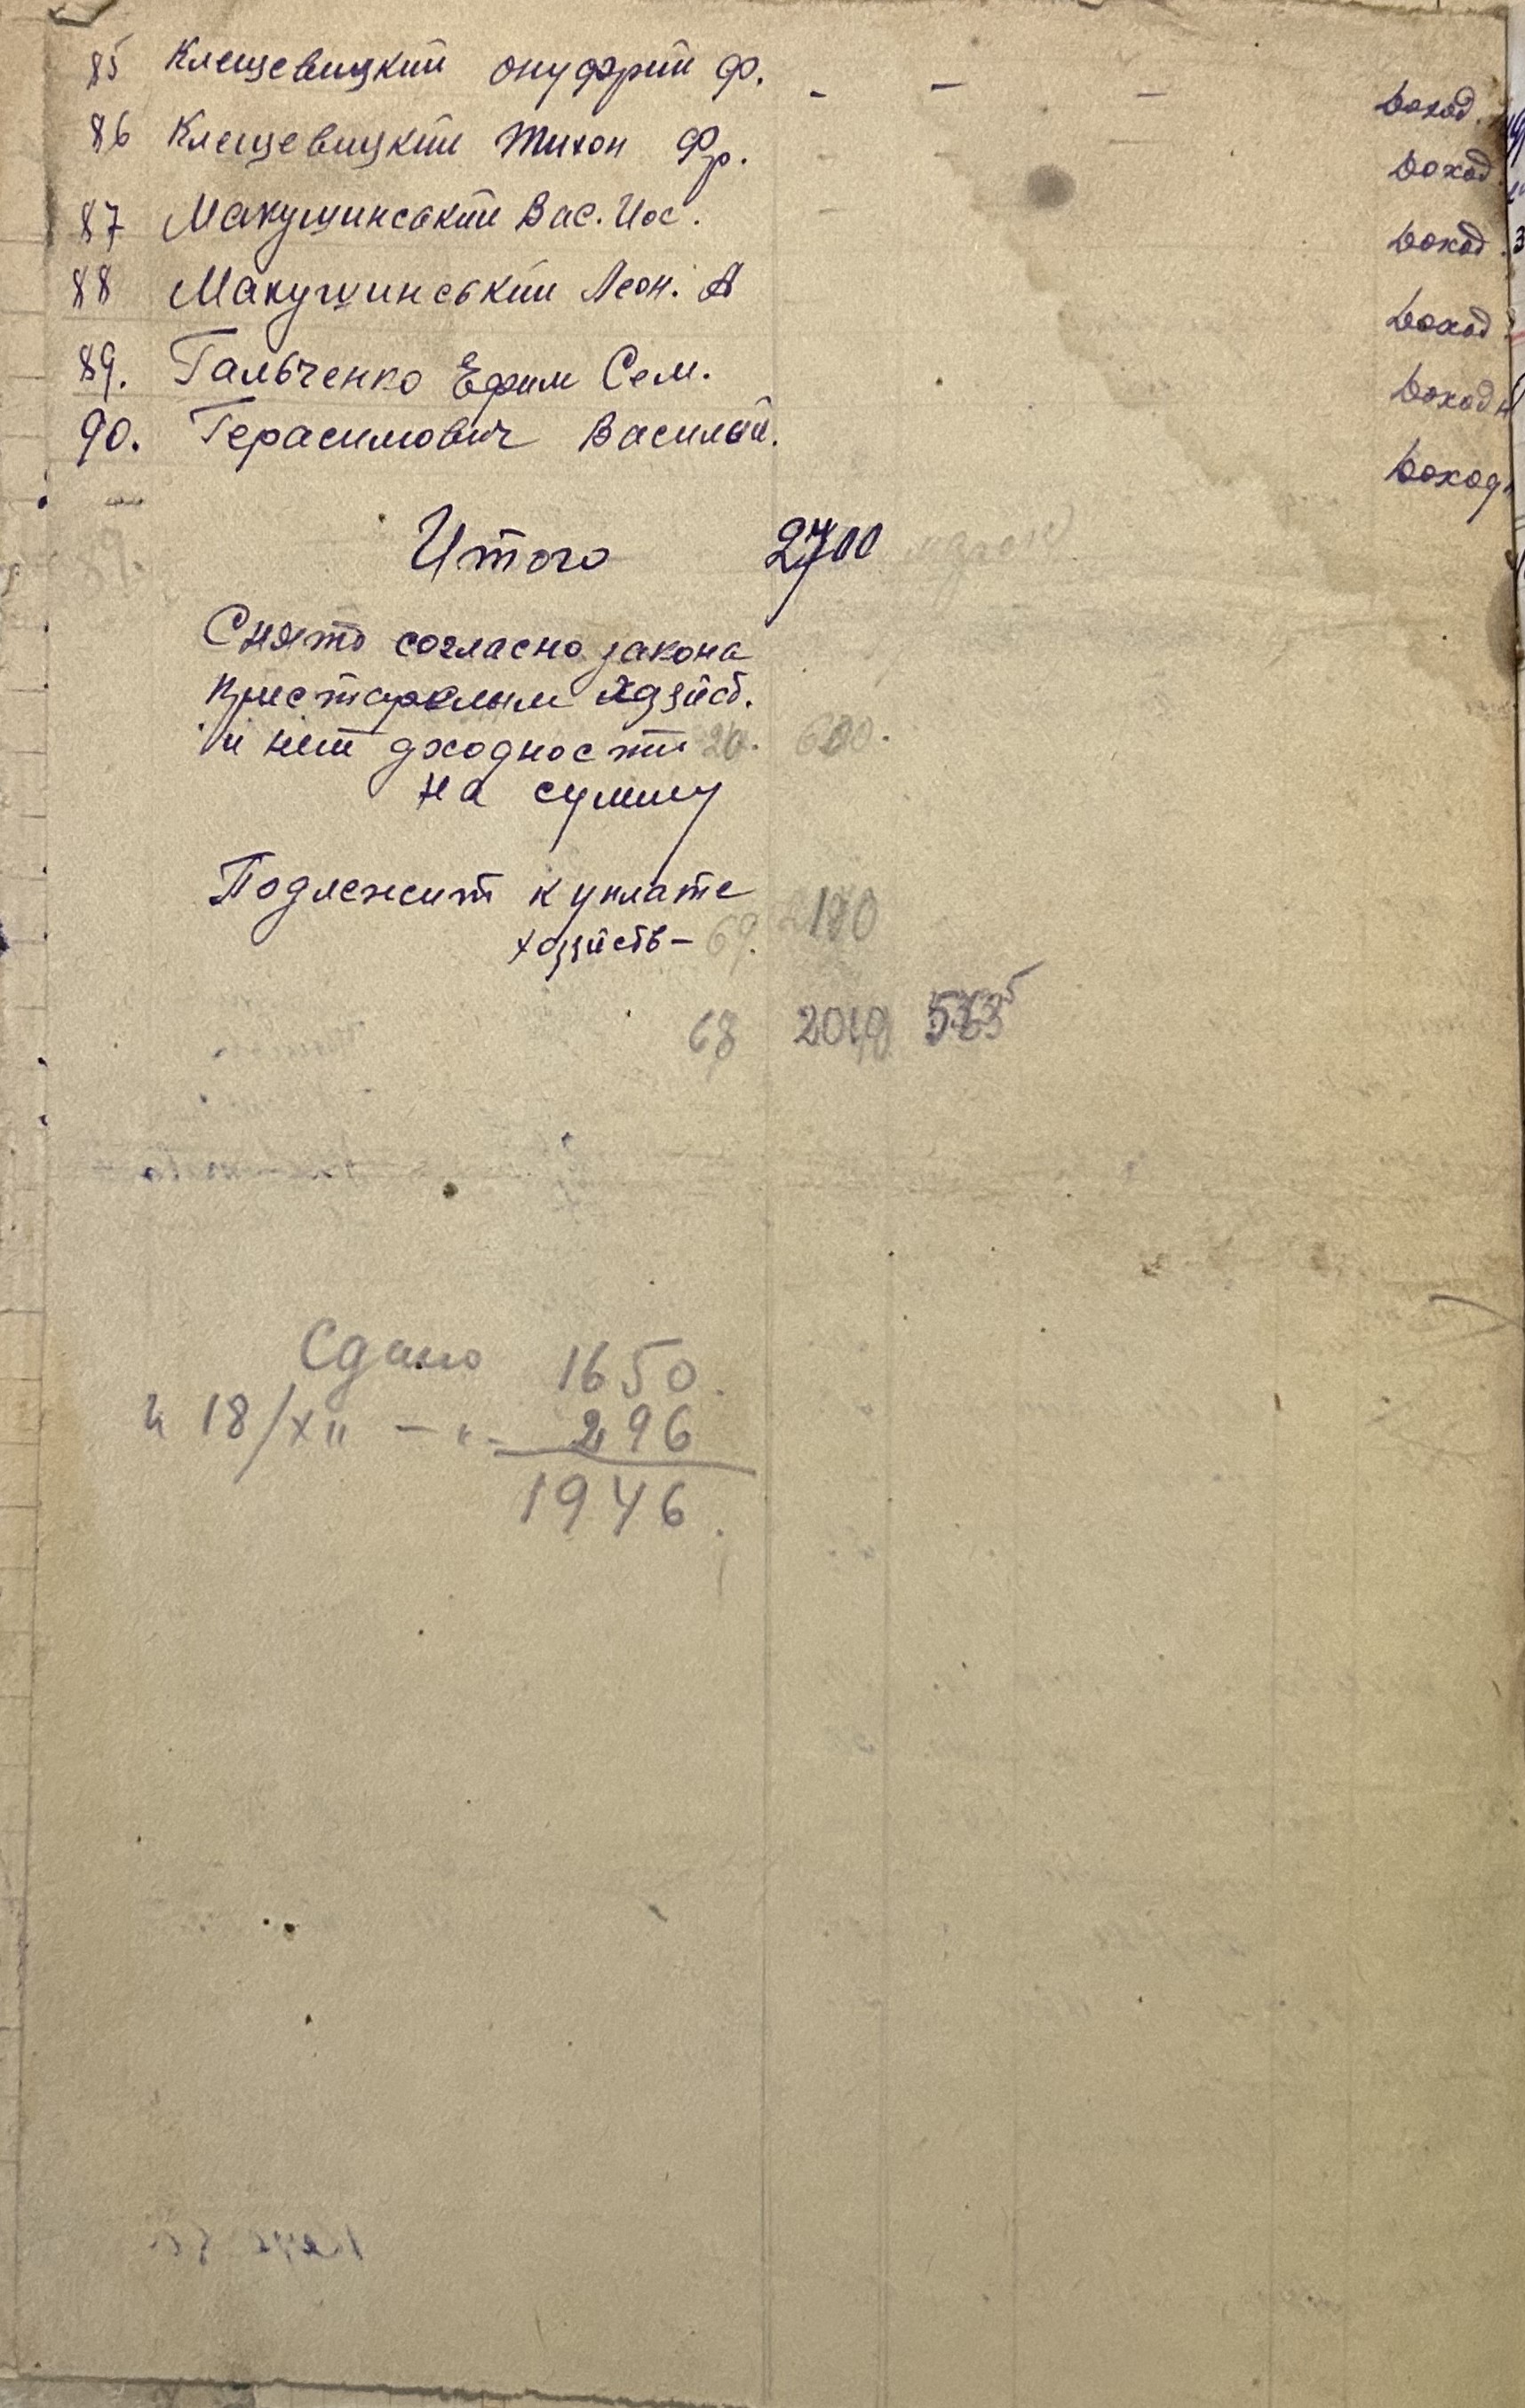 85 Клещевицкий Онуфрий Ф. - - - Доход.
86 Клещевицкий Тихон Фр. Доход
87 Макушинський Вас. Иос. Доход.
88 Макушинський Леон. А Доход
89. Гальченко Ефим Сем. Доход
90. Герасимович Василий. Доход
Итого 2700
Снято согласно закона
Престарелым хозяйст.
и нет доходности 20. 600.
на сумму
Подлежит к уплате
хозяйств- 69. 2180
68
Сдано 1650.
и 18/XII - " - 296
1946.